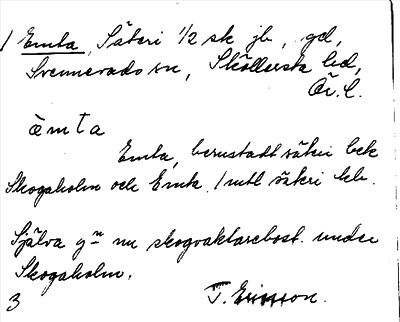 / Emta, Säteri 1/2 sk jb, gd,
Svennevads sn, Sköllersta hd,
Ör. l.
ämta
Emta, berustadt säteri bek
Skogaholm och Emta. 1 mtl säteri beb.
Själva gn nu skogvaktarebost. under
Skogaholm.
3 T. Ericsson.